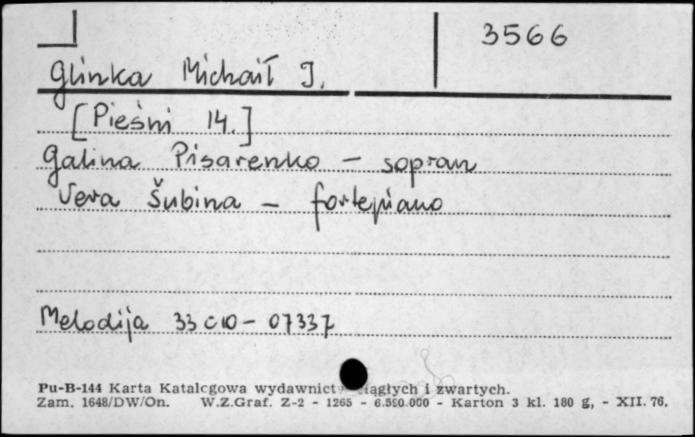 3566
Glinka Michaił I.
[Pieśni 14.]
Galina Pisarenko – sopran
Vera Šubina – fortepiano
Melodija 33 c 10 – 07337
Pu-B-144 Karta Katalogowa wydawnictw ciągłych i zwartych.
Zam. 1648/DW/On. W.Z.Graf. Z-2 - 1265 - 6.590.000 - Karton 3 kl. 180 g, - XII. 76.